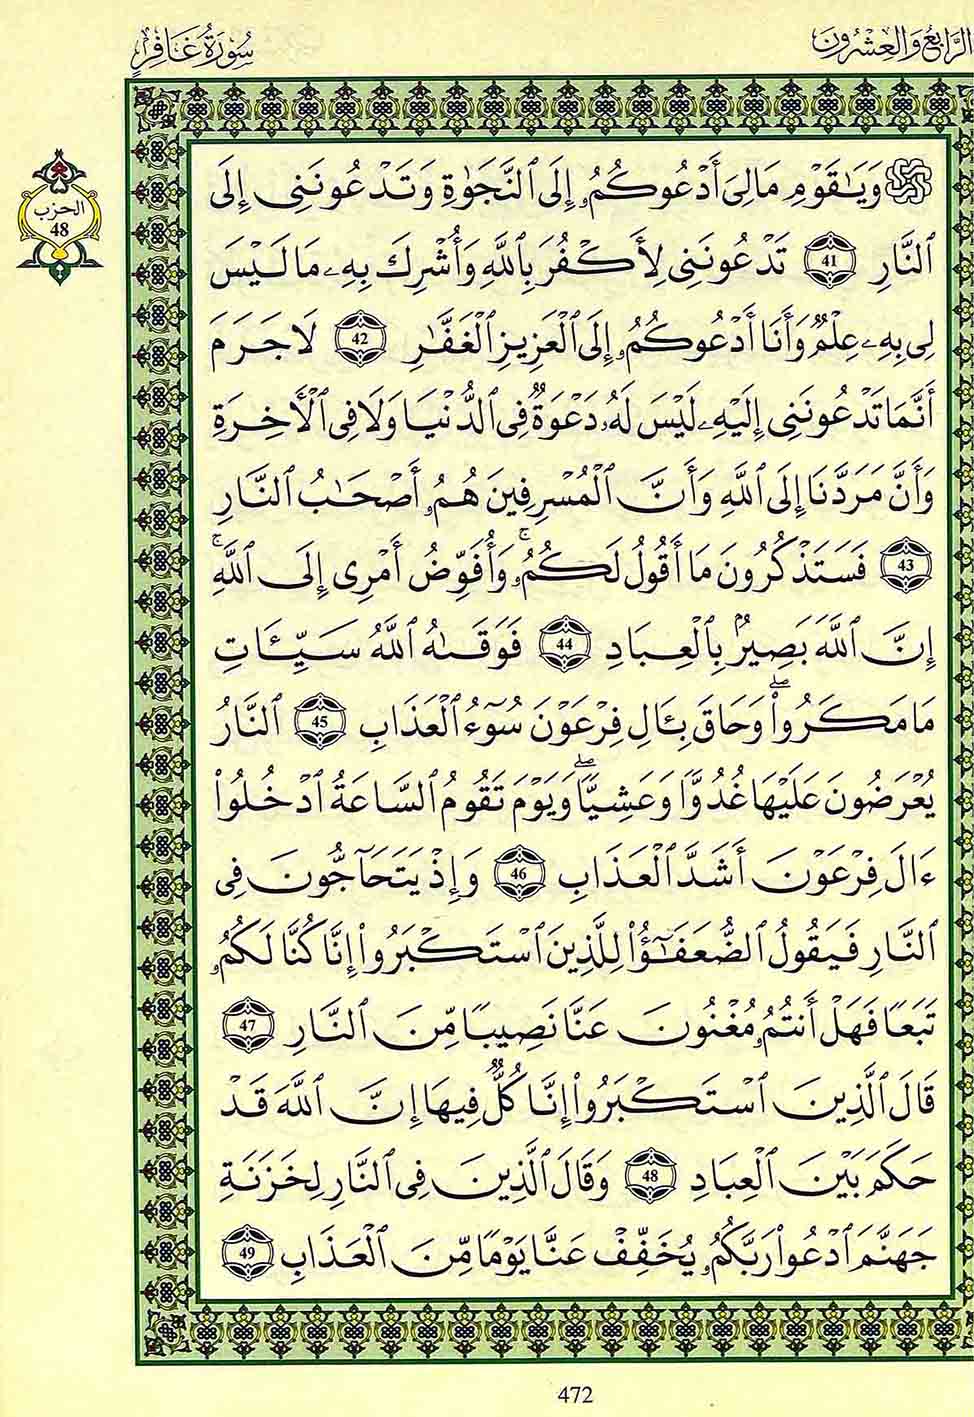 الرَّابِعُ وَالعِشْرُونَ
سُورَةُ غَافِرٍ
الحزب
48
وَيَـٰقَوْمِ مَا لِىَ أَدْعُوكُمُۥٓ إِلَى ٱلنَّجَوٰةِ وَتَدْعُونَنِىٓ إِلَى
ٱلنَّارِ 41 تَدْعُونَنِى لِأَكْفُرَ بِٱللَّهِ وَأُشْرِكَ بِهِۦ مَا لَيْسَ
لِى بِهِۦ عِلْمٌ وَأَنَا أَدْعُوكُمُۥٓ إِلَى ٱلْعَزِيزِ ٱلْغَفَّـٰرِ 42 لَا جَرَمَ
أَنَّمَا تَدْعُونَنِىٓ إِلَيْهِۦ لَيْسَ لَهُۥ دَعْوَةٌ فِى ٱلدُّنْيَا وَلَا فِى ٱلْأَخِرَةِ
وَأَنَّ مَرَدَّنَا إِلَى ٱللَّهِ وَأَنَّ ٱلْمُسْرِفِينَ هُمُۥٓ أَصْحَـٰبُ ٱلنَّارِ
43 فَسَتَذْكُرُونَ مَا أَقُولُ لَكُمُۥ ۚ وَأُفَوِّضُ أَمْرِى إِلَى ٱللَّهِ ۚ
إِنَّ ٱللَّهَ بَصِيرٌۢ بِٱلْعِبَادِ 44 فَوَقَـٰهُ ٱللَّهُ سَيِّـَٔاتِ
مَا مَكَرُوا۟ ۖ وَحَاقَ بِـَٔالِ فِرْعَوْنَ سُوٓءُ ٱلْعَذَابِ 45 ٱلنَّارُ
يُعْرَضُونَ عَلَيْهَا غُدُوًّا وَعَشِيًّا ۖ وَيَوْمَ تَقُومُ ٱلسَّاعَةُ ٱدْخُلُوا۟
ءَالَ فِرْعَوْنَ أَشَدَّ ٱلْعَذَابِ 46 وَإِذْ يَتَحَآجُّونَ فِى
ٱلنَّارِ فَيَقُولُ ٱلضُّعَفَـٰٓؤُا۟ لِلَّذِينَ ٱسْتَكْبَرُوا۟ إِنَّا كُنَّا لَكُمُۥ
تَبَعًا فَهَلْ أَنتُمُۥ مُغْنُونَ عَنَّا نَصِيبًا مِّنَ ٱلنَّارِ 47
قَالَ ٱلَّذِينَ ٱسْتَكْبَرُوا۟ إِنَّا كُلٌّ فِيهَا إِنَّ ٱللَّهَ قَدْ
حَكَمَ بَيْنَ ٱلْعِبَادِ 48 وَقَالَ ٱلَّذِينَ فِى ٱلنَّارِ لِخَزَنَةِ
جَهَنَّمَ ٱدْعُوا۟ رَبَّكُمُۥ يُخَفِّفْ عَنَّا يَوْمًا مِّنَ ٱلْعَذَابِ 49
472